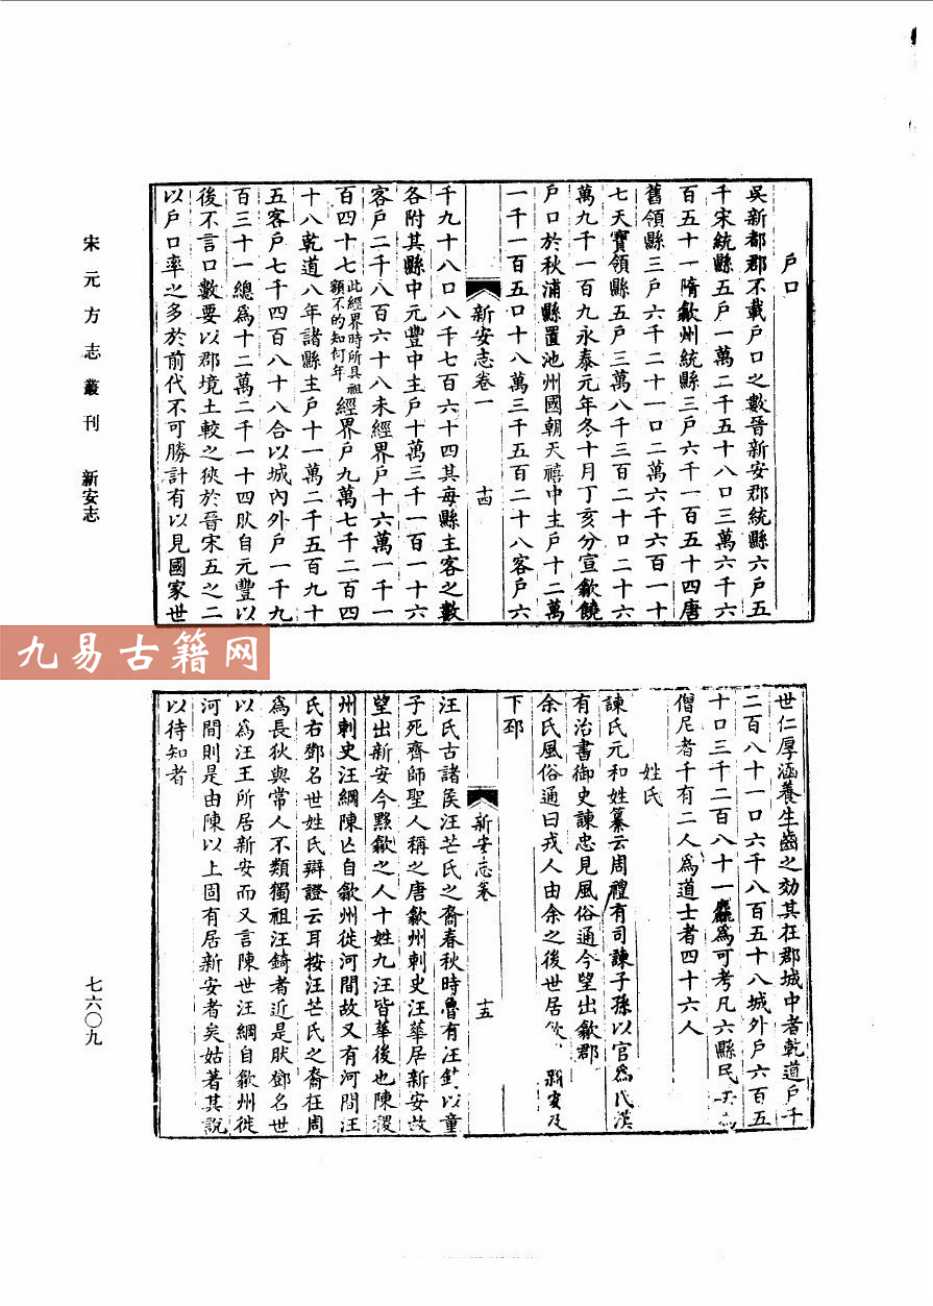 戶口
吳新都郡不載戶口之數晉新安郡統縣六戶五
千宋統縣五戶一萬二千五十八口三萬六千六
百五十一隋歙州統縣三戶六千一百五十四唐
舊領縣三戶六千二十一口二萬六千六百一十
七天寶領縣五戶三萬八千三百二十口二十六
萬九千一百九永泰元年冬十月丁亥分宣歙饒
戶口於秋浦縣置池州國朝天禧中主戶十二萬
一千一百五口十八萬三千五百二十八客戶六
新安志卷一 十四
千九十八口八千七百六十四其每縣主客之數
各附其縣中元豐中主戶十萬三千一百一十六
客戶二千八百六十八未經界戶十六萬一千一
百四十七此經界時所具祖額不的知何年經界戶九萬七千二百四
十八乾道八年諸縣主戶十一萬二千五百九十
五客戶七千四百八十八合以城內外戶一千九
百三十一總爲十二萬二千一十四肰自元豐以
後不言口數要以郡境土較之狹於晉宋五之二
以戶口率之多於前代不可勝計有以見國家世
世仁厚涵養生齒之効其在郡城中者乾道戶千
二百八十一口六千八百五十八城外戶六百五
十口三千二百八十一麤爲可考凡六縣民
僧尼者千有二人爲道士者四十六人
姓氏
諫氏元和姓纂云周禮有司諫子孫以官爲氏漢
有治書御史諫忠見風俗通今望出歙郡
余氏風俗通曰戎人由余之後世居歙 新安及
下邳
新安志卷 十五
汪氏古諸侯汪芒氏之裔春秋時魯有汪錡以童
子死齊師聖人稱之唐歙州刺史汪華居新安故
望出新安今黟歙之人十姓九汪皆華後也陳稷
州刺史汪綱陳亾自歙州徙河間故又有河間汪
氏右鄧名世姓氏辯證云耳按汪芒氏之裔在周
爲長狄與常人不類獨祖汪錡者近是肰鄧名世
以爲汪王所居新安而又言陳世汪綱自歙州徙
河間則是由陳以上固有居新安者矣姑著其說
以待知者
宋元方志叢刊 新安志
七六〇九
九易古籍网